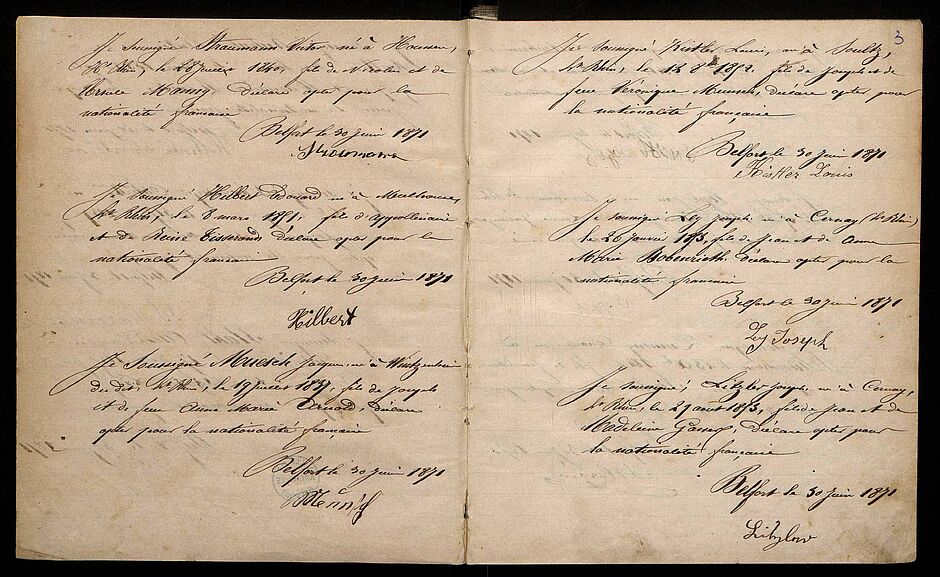 Je soussigné Straumann Victor né à Houssen,
Ht Rhin, le 28 juillet 1840, fils de Nicolas et de
Ursule Maurry Déclare opter pour la
nationalité française
Belfort le 30 juin 1871
Straumann
Je soussigné Hilbert Edouard né à Mulhouse,
Ht Rhin, le 8 mars 1851, fils d'Appollinaire
et de Reine Tisserand, déclare opter pour la
nationalité française
Belfort le 30 juin 1871
Hilbert
Je Soussigné Muesch Jacques, né à Wintzenheim
du dit, Ht Rhin, le 19 juillet, fils de Joseph
et de feue Anne Marie Arnold, Déclare
opter pour la nationalité française
Belfort le 30 juin 1871
3
Je soussigné Kistler Louis, né à Soultz,
Ht Rhin, le 12 8bre 1852, fils de Joseph et de
feue Véronique, déclare opter pour
la nationalité française
Belfort le 30 juin 1871
Kistler Louis
Je soussigné Ley Joseph né à Cernay (Ht Rhin)
le 26 janvier, fils de Jean et de Anne
Marie Bobenrieth déclare opter pour la
nationalité française
Belfort le 30 juin 1871
Ley Joseph
Je soussigné, Litzler Joseph, né à Cernay,
Ht Rhin, le 29 août, fils de Jean et de
Madeleine Gasser, Déclare opter pour
la nationalité française
Belfort le 30 juin 1871